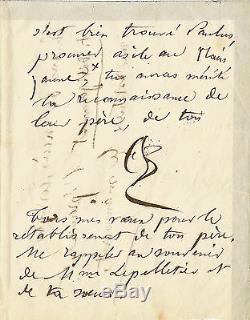 s'est bien trouvé Paulus,
procurer asile au
tu auras mérité
la reconnaissance de
leur père, de toi
Tous mes vœux pour le
rétablissement de ton père.
Me rappeler au souvenir
de Mme Lepelletier et
de ta sœur